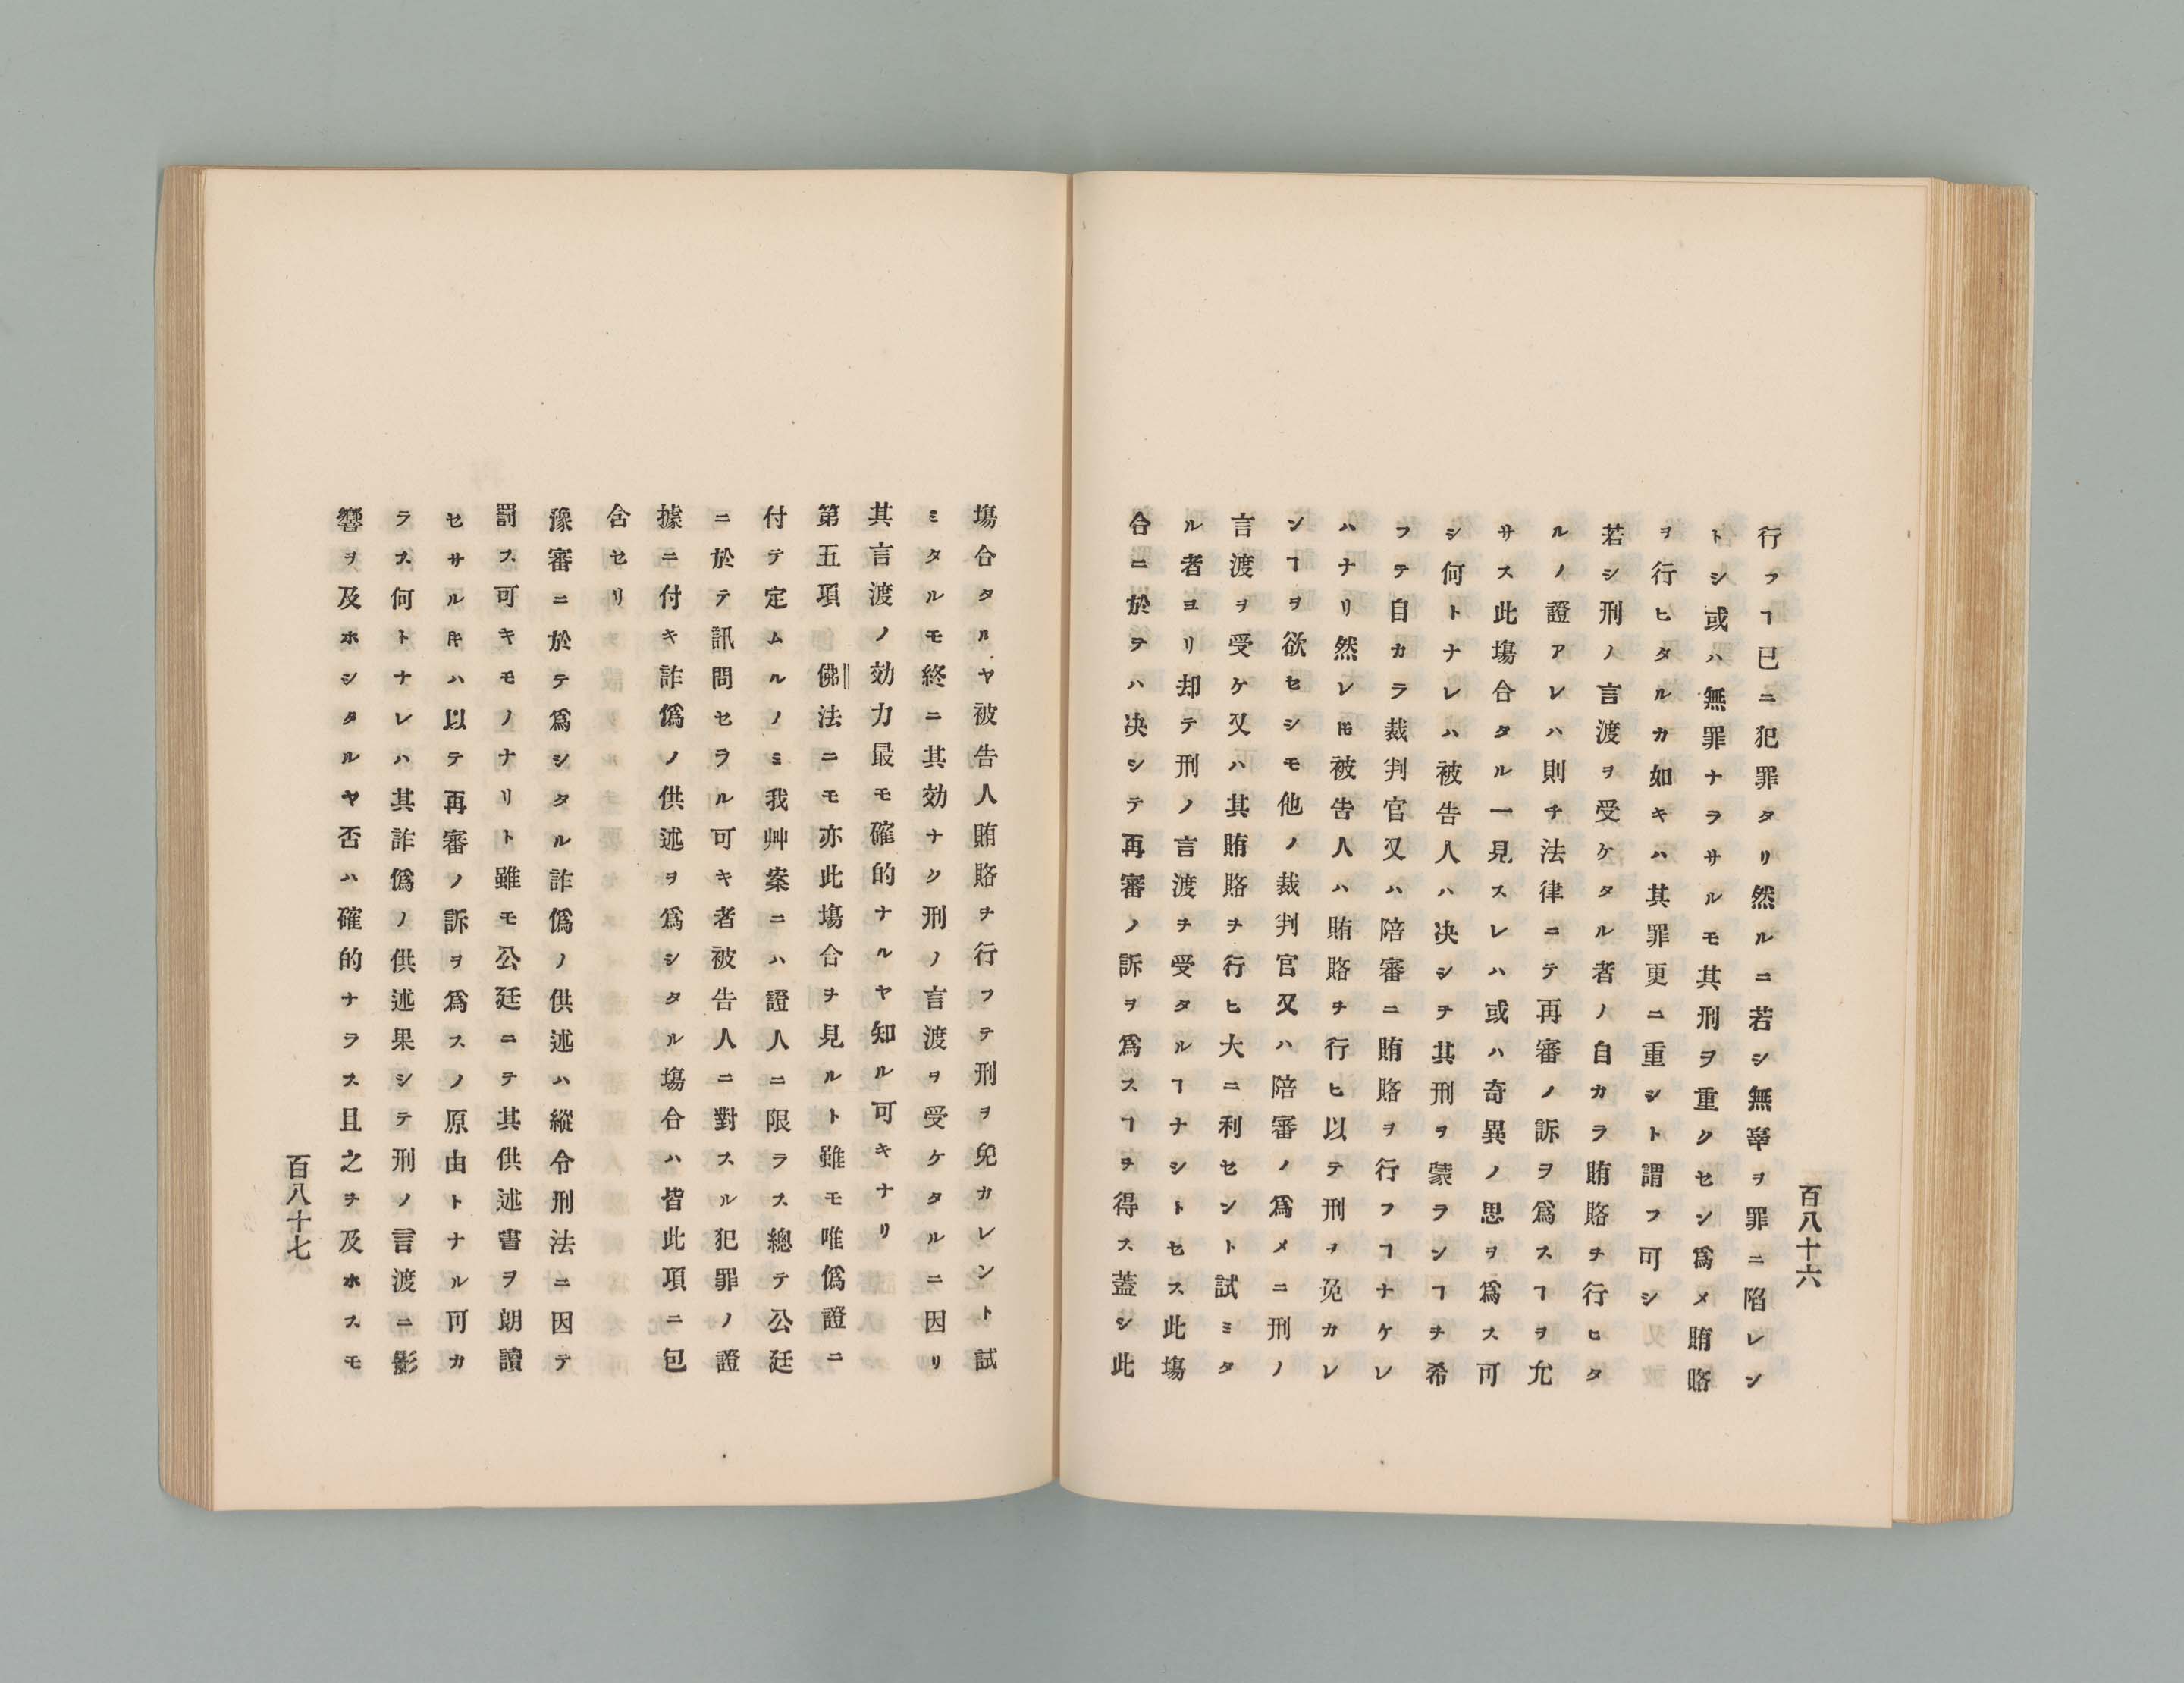 百八十六
行フヿ已ニ犯罪タリ然ルニ若シ無辜ヲ罪ニ陷レン
トシ或ハ無罪ナラサルモ其刑ヲ重クセン爲メ賄賂
ヲ行ヒタルカ如キハ其罪更ニ重シト謂フ可シ
若シ刑ノ言渡ヲ受ケタル者ノ自カラ賄賂ヲ行ヒタ
ルノ證アレハ則チ法律ニテ再審ノ訴ヲ爲スヿヲ允
サス此塲合タル一見スレハ或ハ奇異ノ思ヲ爲ス可
シ何トナレハ被告人ハ决シテ其刑ヲ蒙ランヿヲ希
フテ自カラ裁判官又ハ陪審ニ賄賂ヲ行フヿナケレ
ハナリ然レ𪜈被告人ハ賄賂ヲ行ヒ以テ刑ヲ免カレ
ンヿヲ欲セシモ他ノ裁判官又ハ陪審ノ爲メニ刑ノ
言渡ヲ受ケ又ハ其賄賂ヲ行ヒ大ニ利セント試ミタ
ル者ヨリ却テ刑ノ言渡ヲ受タルヿナシトセス此塲
合ニ於テハ决シテ再審ノ訴ヲ爲スヿヲ得ス蓋シ此
塲合タルヤ被告人賄賂ヲ行フテ刑ヲ免カレント試
ミタルモ終ニ其効ナク刑ノ言渡ヲ受ケタルニ因リ
其言渡ノ効力最モ確的ナルヤ知ル可キナリ
第五項 佛法ニモ亦此塲合ヲ見ルト雖モ唯僞證ニ
付テ定ムルノミ我艸案ニハ證人ニ限ラス總テ公廷
ニ於テ訊問セラル可キ者被告人ニ對スル犯罪ノ證
據ニ付キ詐僞ノ供述ヲ爲シタル塲合ハ皆此項ニ包
含セリ
豫審ニ於テ爲シタル詐僞ノ供述ハ縱令刑法ニ因テ
罰ス可キモノナリト雖モ公廷ニテ其供述書ヲ朗讀
セサル𪜈ハ以テ再審ノ訴ヲ爲スノ原由トナル可カ
ラス何トナレハ其詐僞ノ供述果シテ刑ノ言渡ニ影
響ヲ及ホシタルヤ否ハ確的ナラス且之ヲ及ホスモ
百八十七